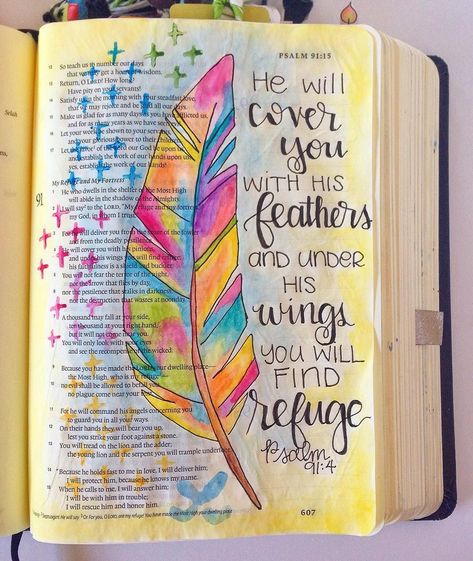 PSALM 91:15
12 So teach us to number our days
that we may get a heart of wisdom.
13 Return, O LORD! How long?
Have pity on your servants!
14 Satisfy us in the morning with your steadfast love,
that we may rejoice and be glad all our days.
15 Make us glad for as many days as you have afflicted us,
and for as many years as we have
16 Let your work be shown to your servants,
and your glorious power to their
17 Let the favor of the Lord our God be upon us,
and establish the work of our hands upon us;
yes, establish the work of our hands!
My Refuge and My Fortress
91
He who dwells in the shelter of the Most High
will abide in the shadow of the Almighty.
2 I will say to the LORD, "My
my God, in whom I trust."
3 For he will deliver you from
from the deadly
4 He will cover you with his pinions,
and under his wings you will find
his faithfulness is a shield and
5 You will not fear the terror of the night,
nor the arrow that flies by day,
6 nor the pestilence that stalks in darkness,
nor the destruction that wastes at noonday.
7 A thousand may fall at your side,
ten thousand at your right hand,
but it will not come near you.
8 You will only look with your eyes
and see the recompense of the wicked.
9 Because you have made the LORD your dwelling place—
the Most High, who is my refuge—
10 no evil shall be allowed to befall you,
no plague come near your tent.
11 For he will command his angels concerning you
to guard you in all your ways.
12 On their hands they will bear you up,
lest you strike your foot against a stone.
13 You will tread on the lion and the adder;
the young lion and the serpent you will trample underfoot.
14 "Because he holds fast to me in love, I will deliver him;
I will protect him, because he knows my name.
15 When he calls to me, I will answer him;
I will be with him in trouble;
I will rescue him and honor him.
He will
cover
you
with his
feathers
and under
his
wings
you will
find
refuge
Psalm
91:4
607
Selah